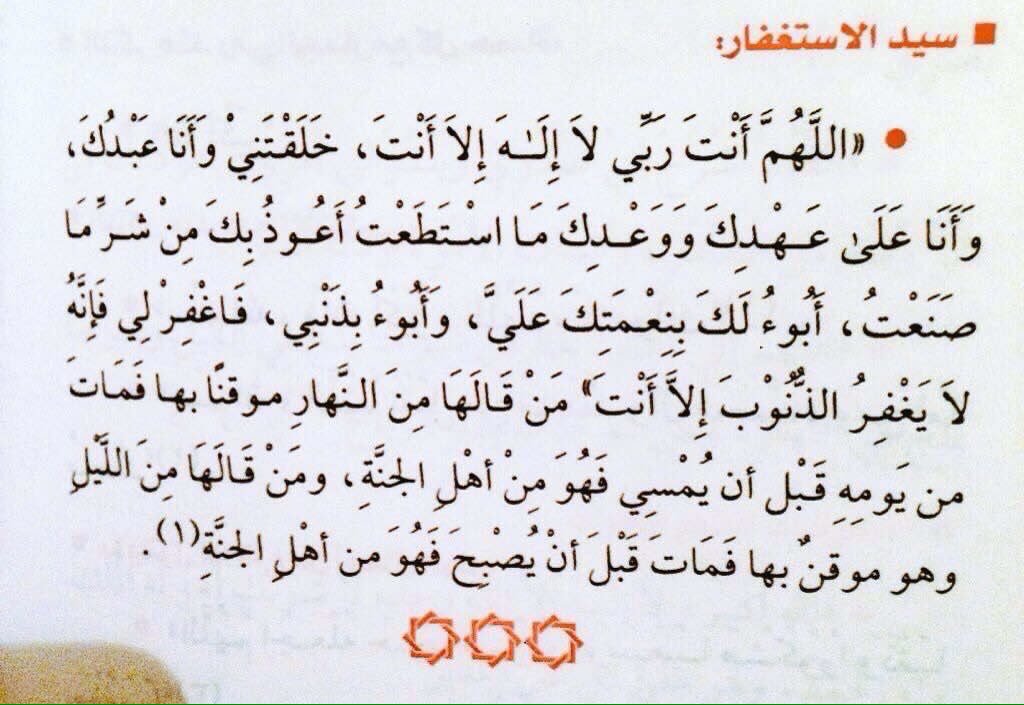 ■ سيد الاستغفار:
● «اللَّهُمَّ أَنْتَ رَبِّي لاَ إِلَـٰهَ إِلاَ أَنْتَ، خَلَقْتَنِيْ وَأَنَا عَبْدُكَ،
وَأَنَا عَلَىٰ عَـهْدِكَ وَوَعْـدِكَ مَـا اسْـتَطَعْتُ أَعُـوذُ بِكَ مِنْ شَـرِّ مَا
صَنَعْتُ، أَبُوءُ لَكَ بِنِعْمَتِكَ عَلَيَّ، وَأَبُوءُ بِذَنْبِي، فَـاغْفِـرْ لِي فَإِنَّهُ
لاَ يَغْفِـرُ الذُّنُوْبَ إِلاَّ أَنْتَ» مَنْ قَـالَهَا مِنَ النَّهارِ مـوقنًا بـها فَمَاتَ
من يَومِهِ قَـبْل أن يُمْسِي فَهُوَ مِنْ أهْلِ الجَنَّةِ، ومَنْ قَـالَهَا مِنَ اللَّيْلِ
وهو موقنٌ بها فَمَاتَ قَبْلَ أنْ يُصْبِحَ فَهُوَ من أهْلِ الجنَّةِ(١).